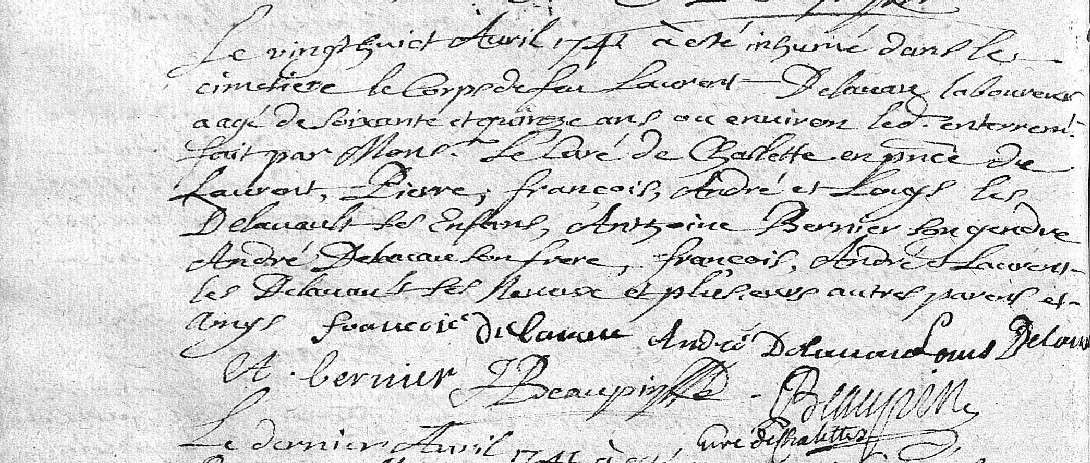 Le vingthuict Avril 1741 a esté inhumé dans le
cimetiere le Corps de feu Laurent Delavau laboureur
aagé de Soixante et quinze ans ou environ led. enterremt.
fait par Monsr. Le Curé de Challette en pnce de
Laurent, Pierre, françois, André et Louys les
Delavault ses Enfans, Anthoine Bernier son gendre
André Delavau son frere, françois, André et Laurent
les Delavault ses Neveux et plusieurs autres parens et
Amys françois delavau André Delavau Louis Delau
A. bernier Beaupin Beaupin
curé de Chalette
Le dernier Avril 1741 a